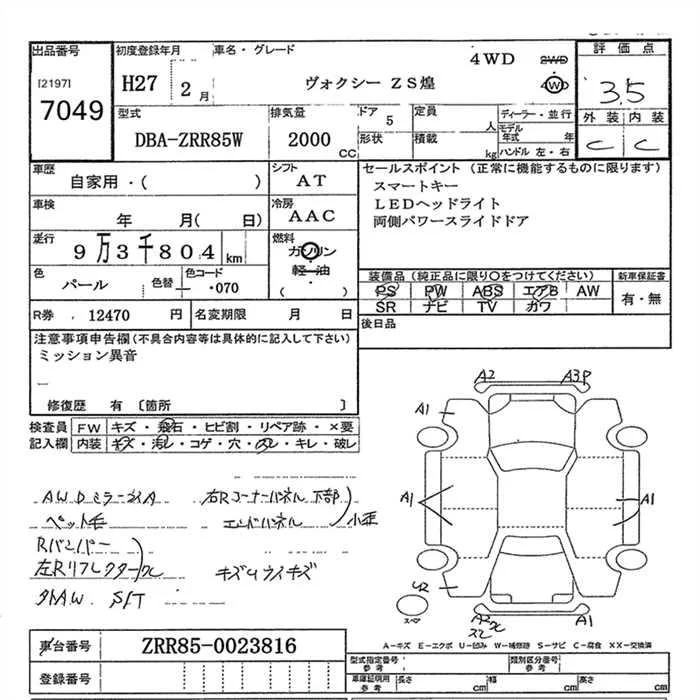 出品番号 初度登録年月 車名・グレード 4WD 2WD 評価点
[2197] H27 2月 ヴォクシー ZS煌 4WD 3.5
7049 外装 内装
型式 排気量 ドア 5 定員 人 ディーラー・並行
DBA-ZRR85W 2000 CC 形状 積載 kg モデル年式 年 C C
ハンドル 左・右
車歴 シフト セールスポイント (正常に機能するものに限ります)
自家用・( ) AT スマートキー
車検 冷房 LEDヘッドライト
年 月( 日) AAC 両側パワースライドドア
走行 燃料
9万3千804 km ガソリン
軽・油
色 色替 色コード ( ) 装備品 (純正品に限り○をつけてください) 新車保証書
パール ・070 PS PW ABS エアB AW 有・無
SR ナビ TV カワ
R券 12470 円 名変期限 月 日 後日品
注意事項申告欄 (不具合内容等は具体的に記入して下さい)
ミッション異音
修復歴 有 〔箇所 〕
検査員 FW キズ・飛石・ヒビ割・リペア跡・×要
記入欄 内装 キズ・汚レ・コゲ・穴・スレ・キレ・破レ
A2 A3P
A1
A1 A1
AWDミラーカバA 右Rコーナーパネル下部
ペット毛 エンドパネル 小歪
Rバンパー
左Rリフレクター
キズ
外AW. SFT
スペア
A2 A1
A-キズ E-エクボ U-凹み W-補修跡 S-サビ C-腐食 XX-交換済
車台番号 ZRR85-0023816 型式指定番号 参考 類別区分番号 参考
登録番号 車庫証明用 参考 長さ cm 幅 cm 高さ cm